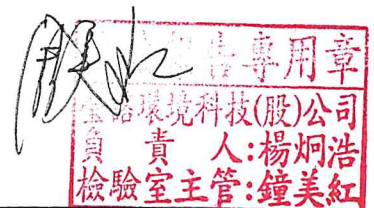 告專用章
環境科技(股)公司
負責人:楊炯浩
檢驗室主管:鐘美紅